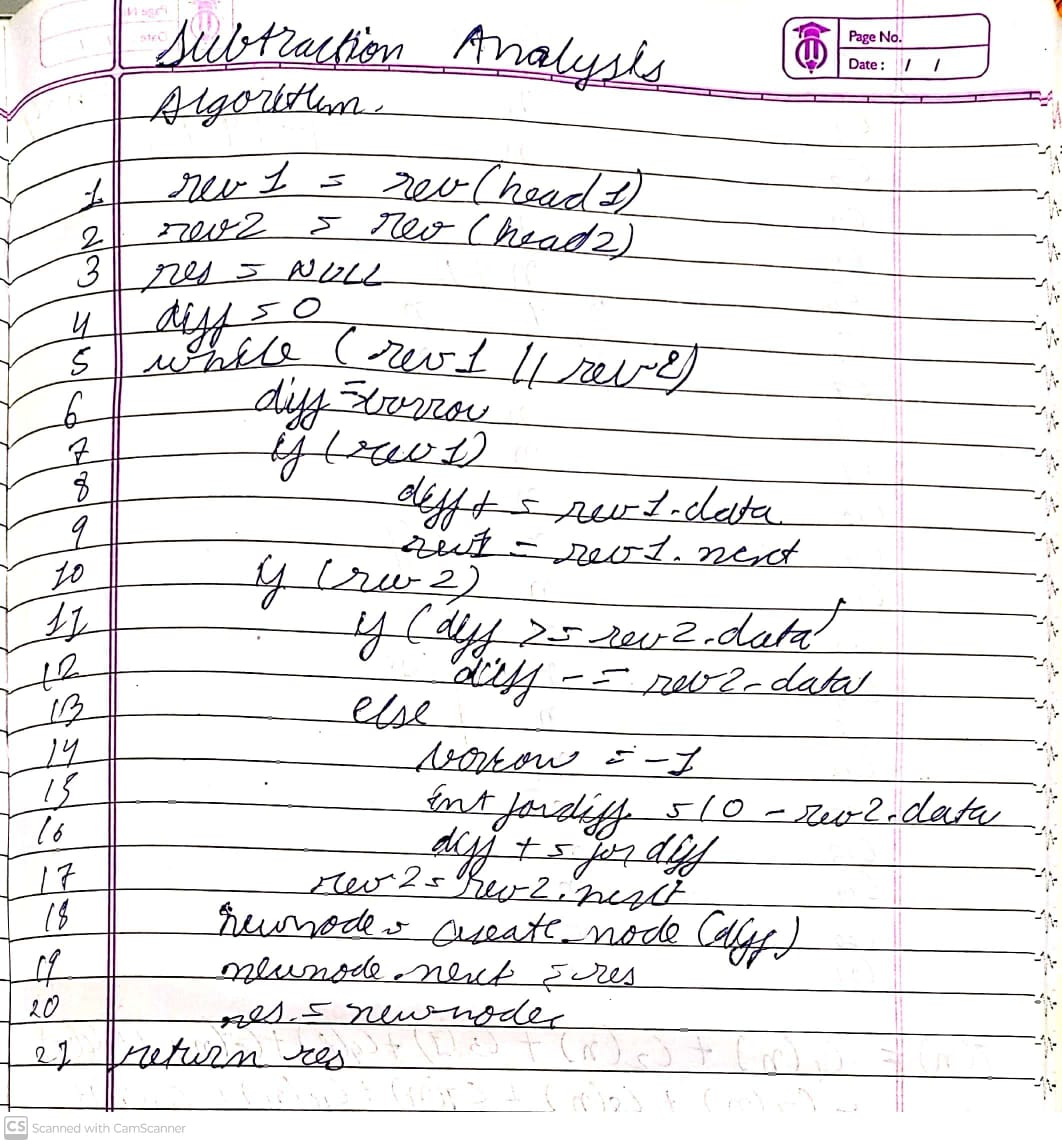 Subtraction Analysis
Page No.
Date : / /
Algorithm.
1 rev 1 = rev (head 1)
2 rev2 = rev (head2)
3 res = NULL
4 diff = 0
5 while (rev1 || rev2)
6 diff = borrow
7 if (rev1)
8 diff + = rev1.data
9 rev1 = rev1.next
10 if (rev2)
11 if (diff >= rev2.data)
12 diff -= rev2.data
13 else
14 borrow = -1
15 int fordiff = 10 - rev2.data
16 diff += for diff
17 rev2 = rev2.next
18 newnode = create_node (diff)
19 newnode.next = res
20 res = newnode
21 return res
CS Scanned with CamScanner